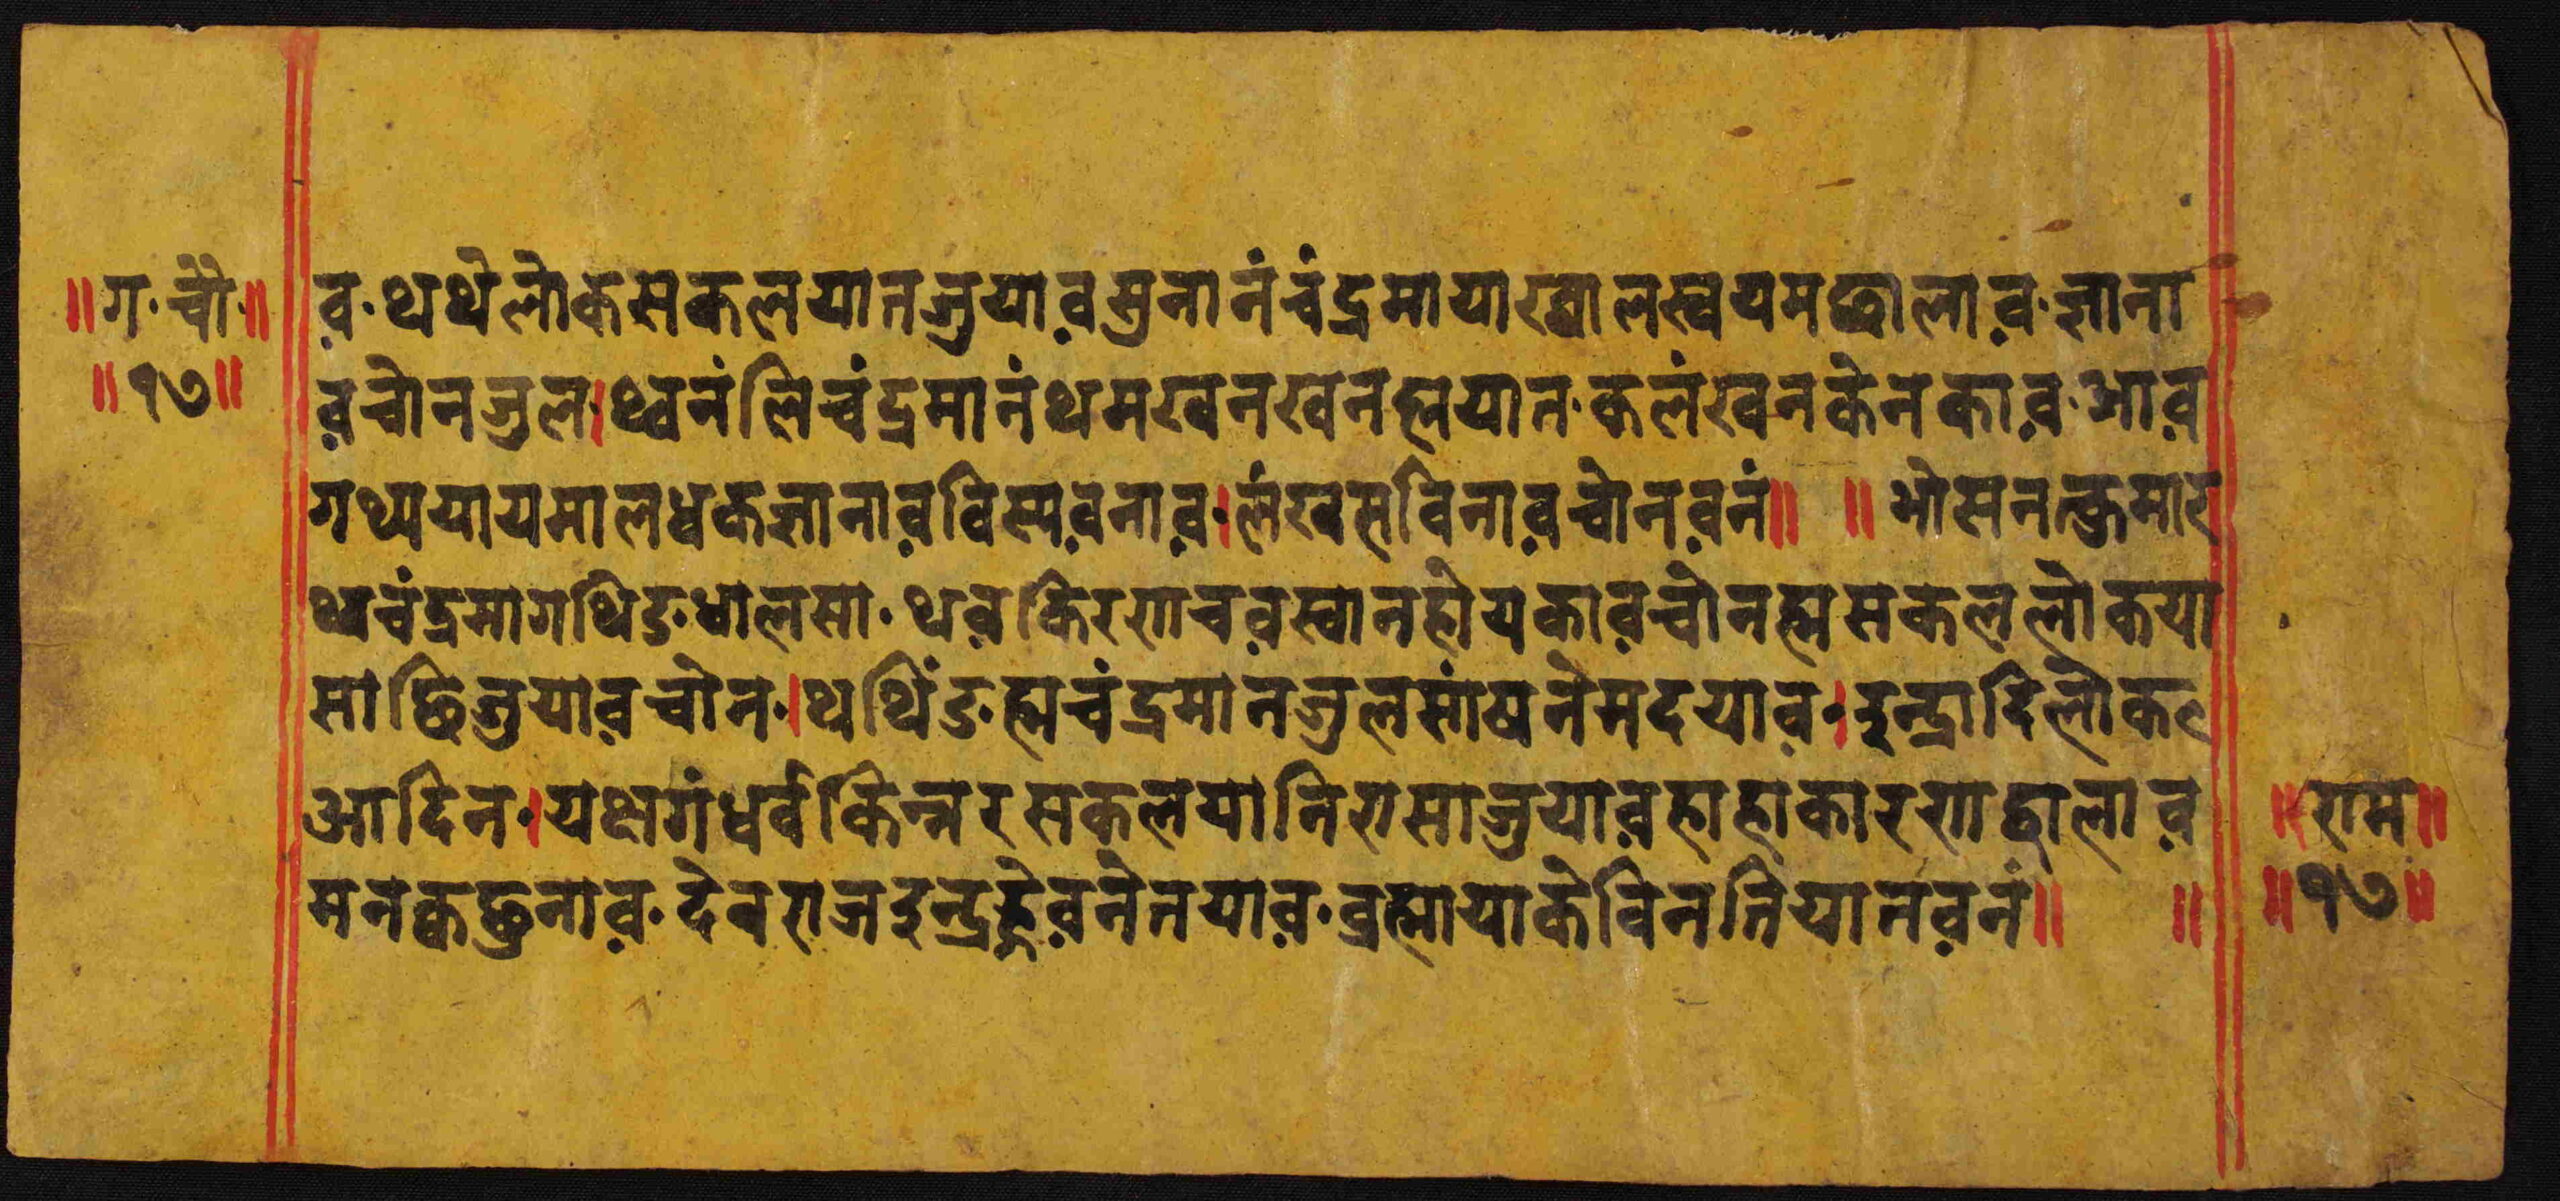 ॥ग·चौ·॥
॥१७॥
व·थथेलोकसकलयातजुयाव़सुनानंचंद्रमायाख्वालस्वयमछालाव़·ज्ञाना
व़चोनजुल·।थ्वनंलिचंद्रमानंथमखनखनह्मयात·कलंखनकेनकाव़·आव़
गथ्ययायमालधकज्ञानाव़विस्यव़नाव़·।लंखसविनाव़चोनव़नं॥ ॥भोसनत्कुमार
थ्वचंद्रमागथिङ·धालसा·थव़किरणचव़स्वानहोयकाव़चोनह्मसकललोकया
साछिजुयाव़चोन·।थथिंङ·ह्मचंद्रमानजुलसांषनेमदयाव़·।इन्द्रादिलोकल
आदिन·।यक्षगंधर्वकिन्नरसकलयानिरासाजुयाव़हाहाकारणद्वालाव़
मनक्वछुनाव़·देवराजइन्द्रह्नेव़नेतयाव़·ब्रह्मायाकेविनतियातव़नं॥ ॥
॥राम॥
॥१७॥